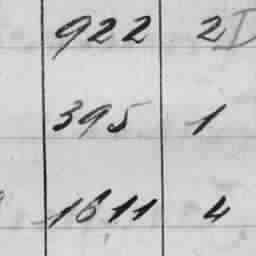 922 2
395 1
1611 4